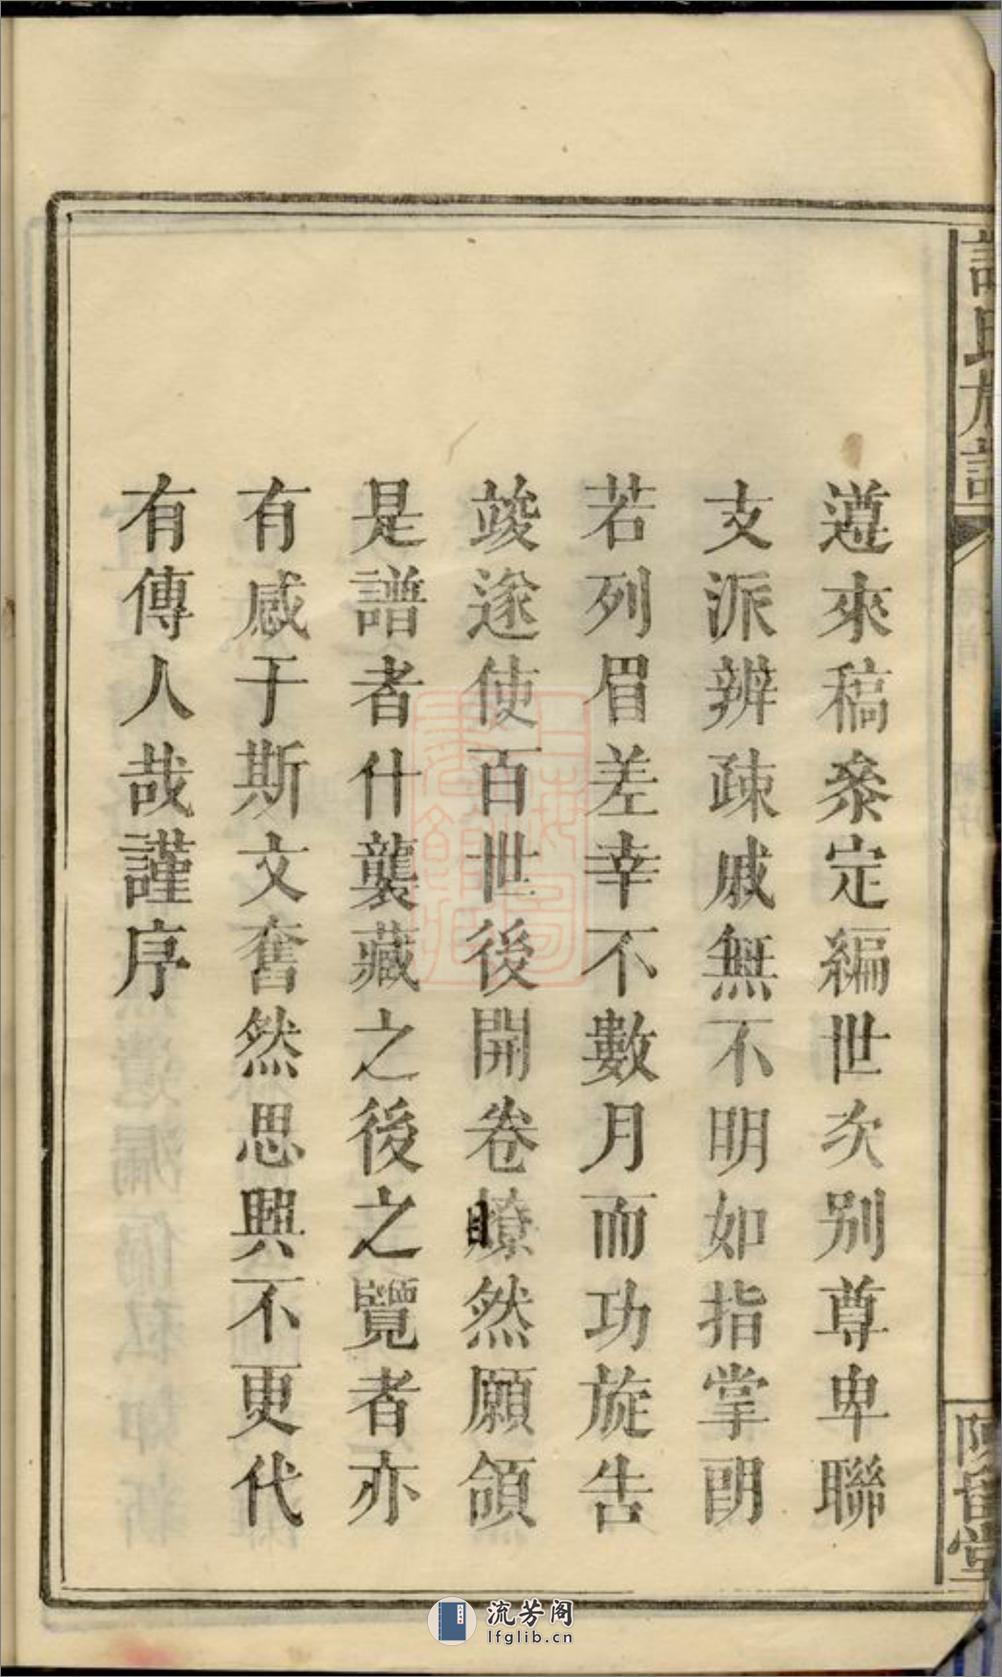 遵來稿叅定編世次别尊卑聯
支派辨疎戚無不明如指掌朗
若列眉差幸不數月而功旋告
竣遂使百世後開卷瞭然願頜
是譜者什襲藏之後之覽者亦
有感于斯文奮然思興不更代
有傳人哉謹序
氏族譜
陳留堂
流芳阁
lfglib.cn